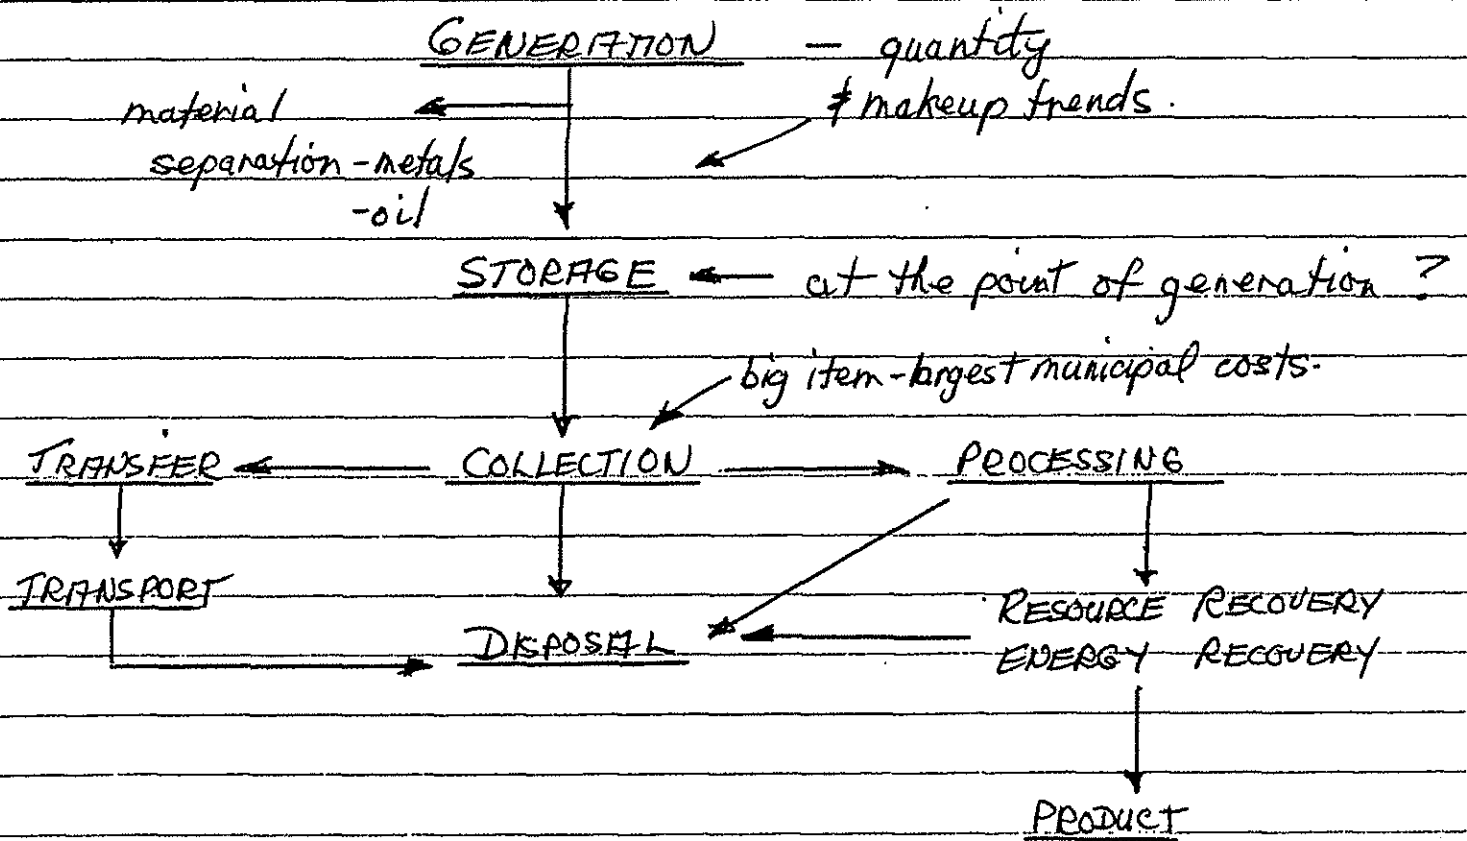 GENERATION - quantity
& makeup trends.
material
separation - metals
- oil
STORAGE at the point of generation ?
big item - largest municipal costs.
TRANSFER COLLECTION PROCESSING
TRANSPORT
RESOURCE RECOVERY
DISPOSAL
ENERGY RECOVERY
PRODUCT